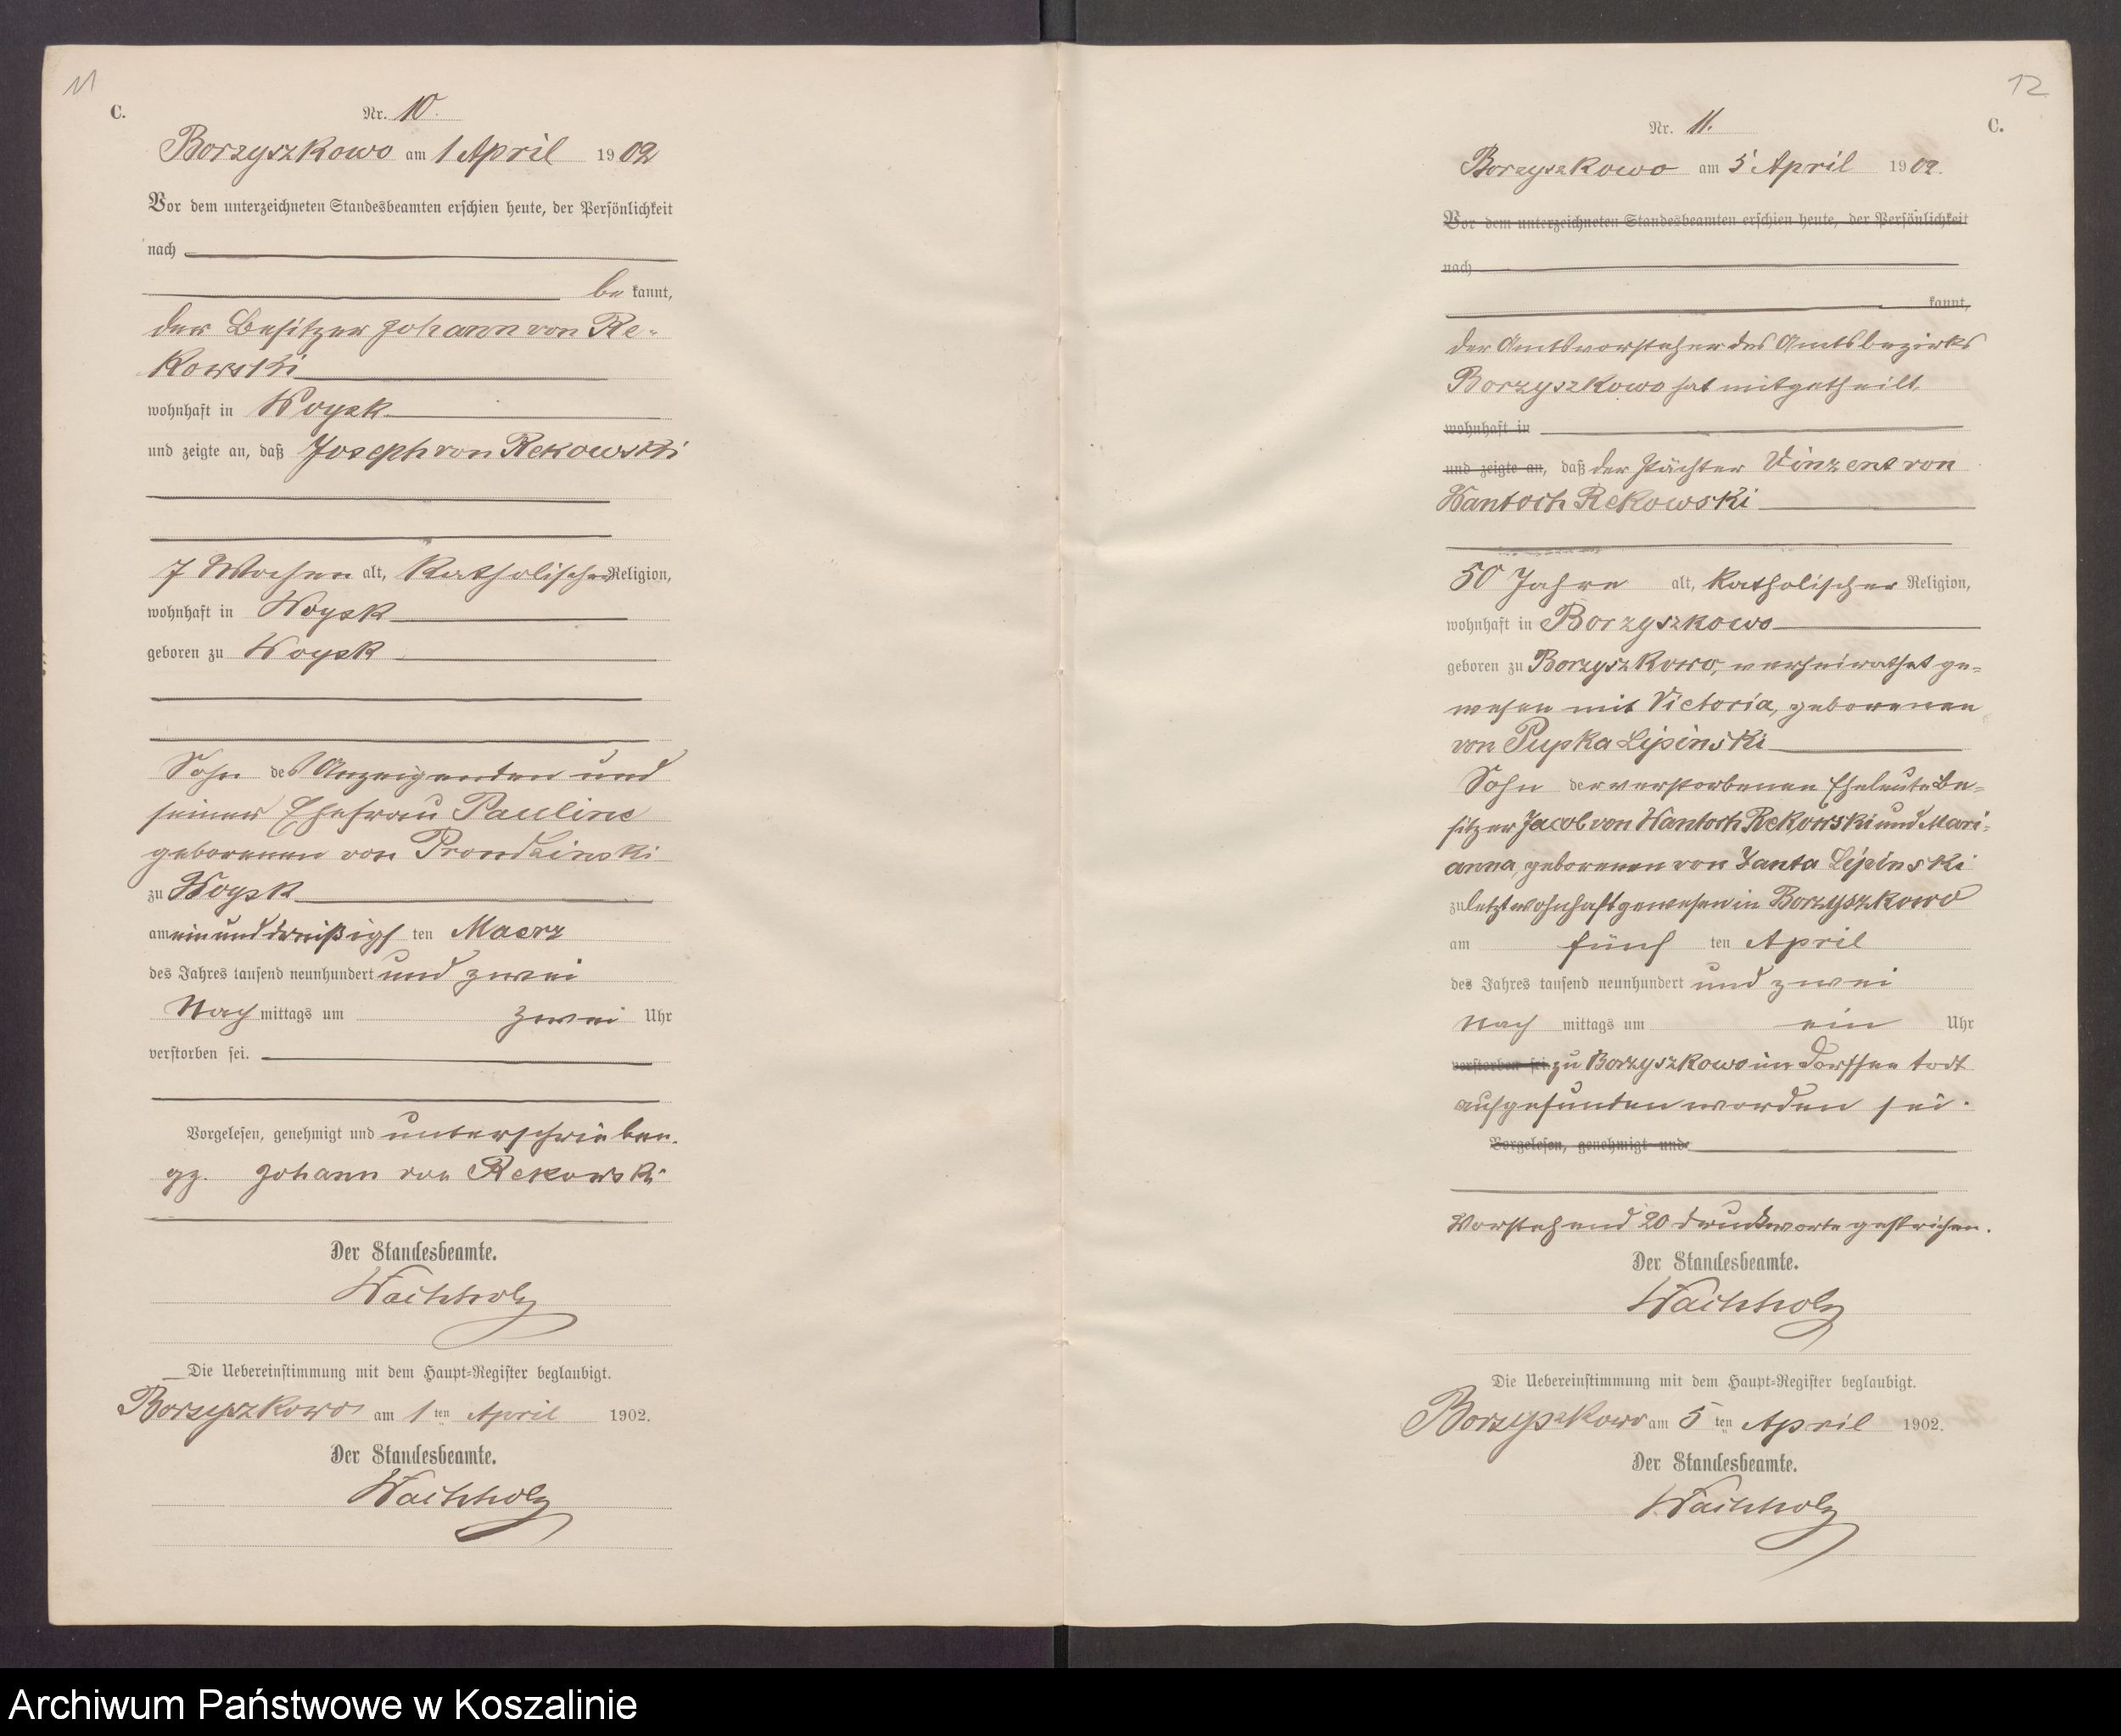 11
C.
Nr. 10.
Borzyszkowo am 1 April 1902
Vor dem unterzeichneten Standesbeamten erschien heute, der Persönlichkeit
nach
be kannt,
der Besitzer Johann von Re-
kowski
wohnhaft in Woysk
und zeigte an, daß Joseph von Rekowski
7 Wochen alt, katholischer Religion,
wohnhaft in Woysk
geboren zu Woysk
Sohn des Anzeigenden und
seiner Ehefrau Pauline
geborenen von Prondzinski
zu Woysk
am einunddreißigs ten Maerz
des Jahres tausend neunhundert und zwei
Nach mittags um zwei Uhr
verstorben sei.
Vorgelesen, genehmigt und unterschrieben.
gz. Johann von Rekowski
Der Standesbeamte.
Wachholz
Die Uebereinstimmung mit dem Haupt-Register beglaubigt.
Borzyszkowo am 1 ten April 1902.
Der Standesbeamte.
Wachholz
12
Nr. 11. C.
Borzyszkowo am 5 April 1902.
Vor dem unterzeichneten Standesbeamten erschien heute, der Persönlichkeit
nach
kannt,
der Amtsvorsteher des Amtsbezirks
Borzyszkowo hat mitgetheilt,
wohnhaft in
und zeigte an, daß der Pächter Vinzent von
Wantoch Rekowski
50 Jahre alt, katholischer Religion,
wohnhaft in Borzyszkowo
geboren zu Borzyszkowo, verheirathet ge-
wesen mit Victoria, geborenen
von Pupka Lipinski
Sohn der verstorbenen Eheleute Be-
sitzer Jacob von Wantoch Rekowski und Mari-
anna, geborenen von Janta Lipinski
zuletzt wohnhaft gewesen in Borzyszkowo
am fünf ten April
des Jahres tausend neunhundert und zwei
Nach mittags um ein Uhr
verstorben sei. zu Borzyszkowo im Dorfsee todt
aufgefunden worden sei.
Vorgelesen, genehmigt und
Vorstehend 20 Druckworte gestrichen.
Der Standesbeamte.
Wachholz
Die Uebereinstimmung mit dem Haupt-Register beglaubigt.
Borzyszkowo am 5 ten April 1902.
Der Standesbeamte.
Wachholz
Archiwum Państwowe w Koszalinie